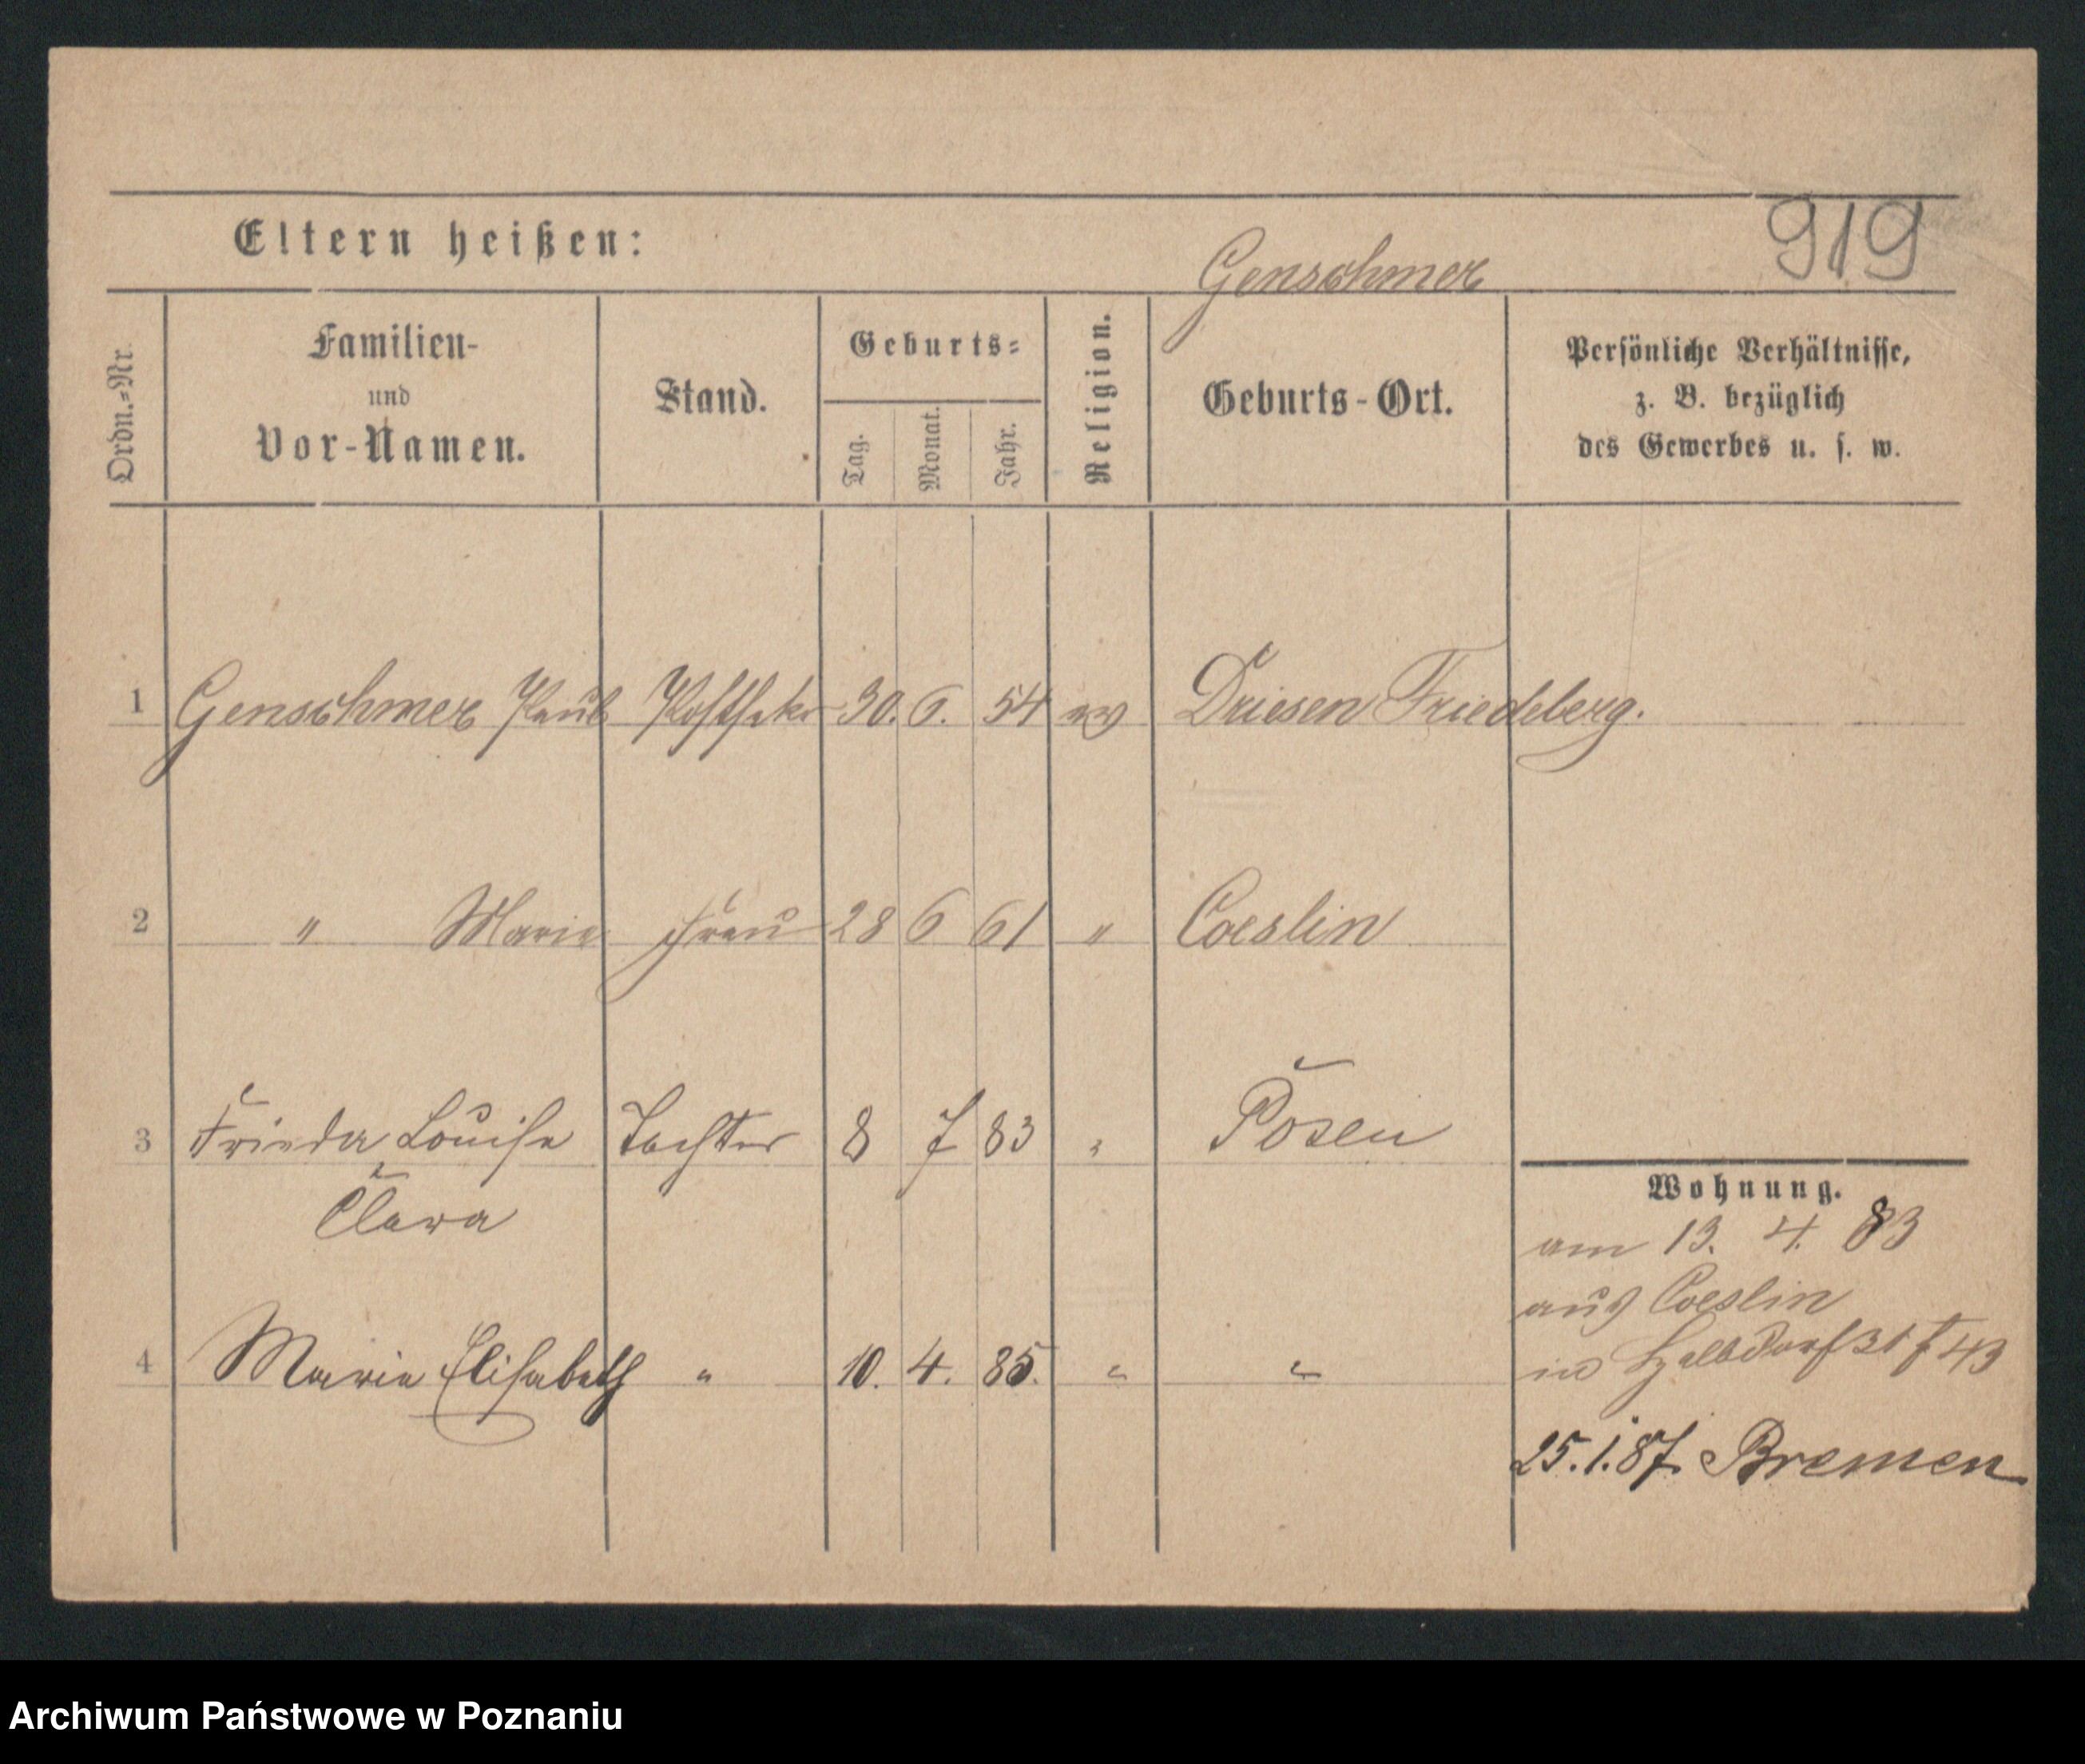 919
Eltern heißen:
Genschmer
Ordn.-Nr.
Familien-
und
Vor-Namen.
Stand.
Geburts-
Tag.
Monat.
Jahr.
Religion.
Geburts-Ort.
Persönliche Verhältnisse,
z. B. bezüglich
des Gewerbes u. s. w.
1 Genschmer Paul 30. 6. 54 ev Driesen Friedeberg.
2 " Marie Frau 28 6 61 " Coeslin
3 Frieda Louise Tochter 8 7 83 " Posen
Clara
4 Marie Elisabeth " 10. 4. 85. " "
Wohnung.
am 13. 4. 83
aus Coeslin
in Halbdorf 31 f 43
25.1.87. Bremen
Archiwum Państwowe w Poznaniu